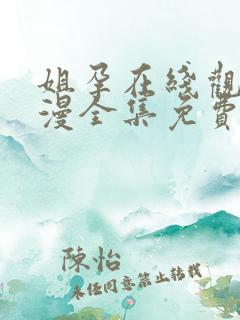 姐孕在綫觀
漫全集免費
陳怡
未经同意禁止转载